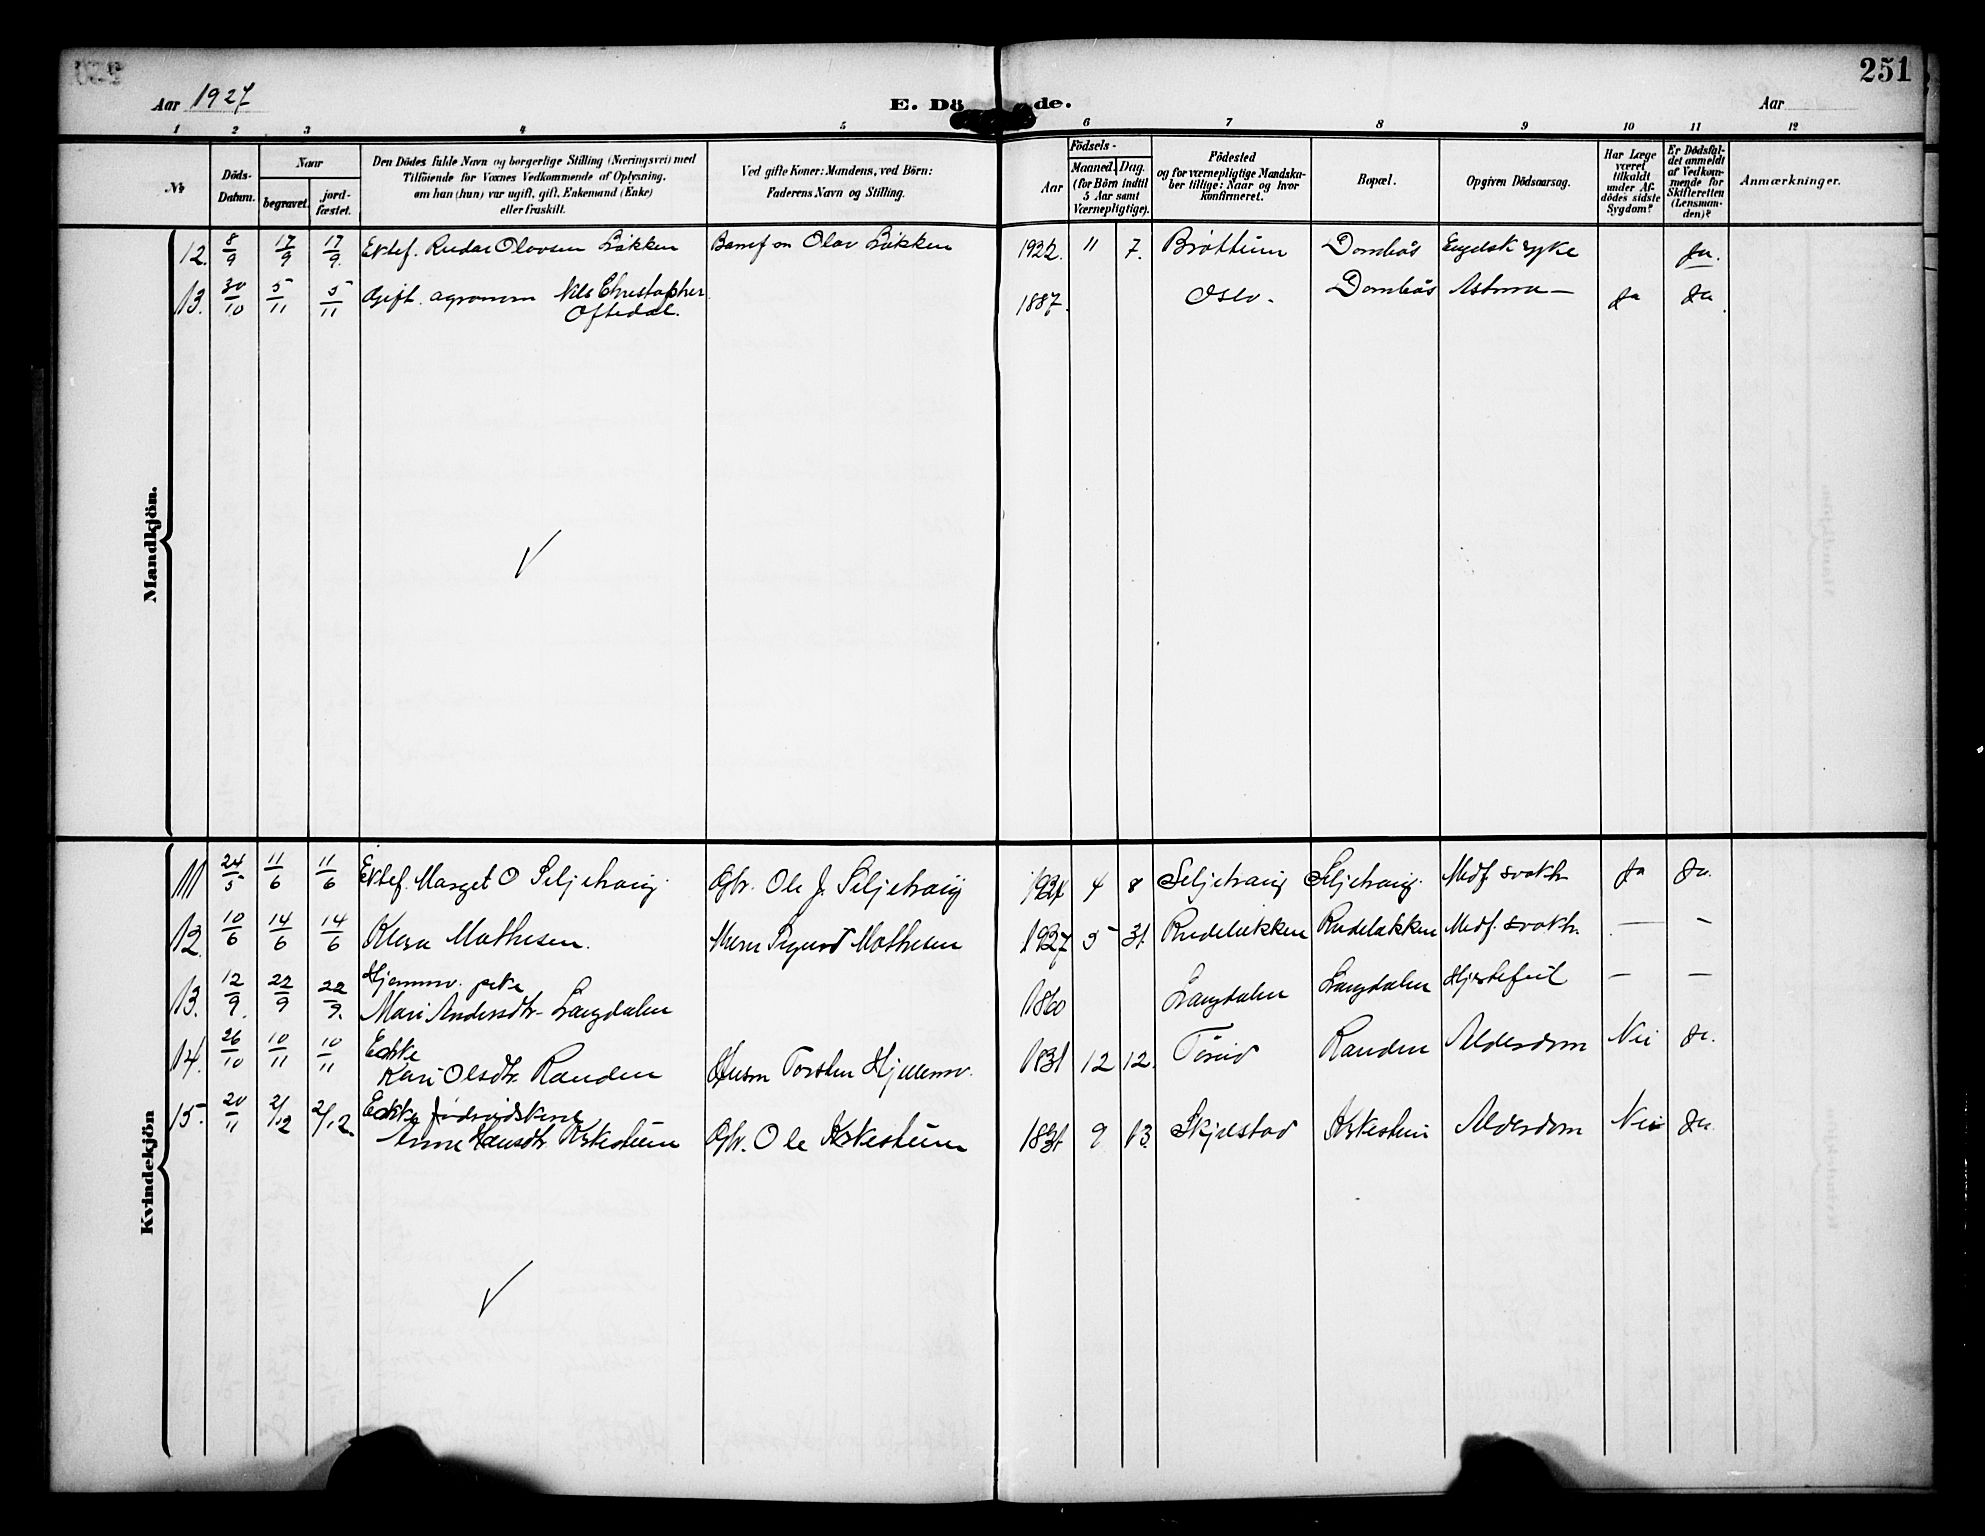 251
Aar 1927
E. Dö de.
Aar
1 2 3 4 5 6 7 8 9 10 11 12
No
Döds-Datum.
Naar
begravet.
jord-fæstet.
Den Dödes fulde Navn og borgerlige Stilling (Næringsvei) med
Tilföiende for Voxnes Vedkommende af Oplysning,
om han (hun) var ugift, gift, Enkemand (Enke)
eller fraskilt.
Ved gifte Koner: Mandens, ved Börn:
Faderens Navn og Stilling.
Födsels-
Aar
Maaned. Dag.
(for Börn indtil
5 Aar samt
Værnepligtige).
Födested
og for værnepligtige Mandska-
ber tillige: Naar og hvor
konfirmeret.
Bopæl.
Opgiven Dödsaarsag.
Har Læge
været
tilkaldt
under Af-
dödes sidste
Sygdom?
Er Dödsfal-
det anmeldt
af Vedkom-
mende for
Skifteretten
(Lensman-
den)?
Anmærkninger.
Mandkjön.
12. 8/9 17/9 17/9. Ektef. Reidar Olavsen Løkken Olav Løkken 1922. 11 7. Brøttum Dombås Engelsk syke Ja.
13. 30/10 5/11 5/11 Gift. agronom Nils Christopher Oftedal. 1887. Oslo. Dombås Astma Ja Ja
Kvindekjön
11 24/5 11/6 11/6 Ektef. Marget O Seljehaug Gbr. Ole J. Seljehaug 1927 4 8 Seljehaug Seljehaug. Medf. svakh. Ja Ja.
12. 10/6 14/6 14/6 Klara Mathisen. Sigurd Mathisen 1927 5 31. Rudeløkken Rudeløkken Medf. svakh. — —
13. 12/9. 22/9 22/9. Hjemmv. pike
Mari Andersdtr. Langdalen 1860 Langdalen Langdalen Hjertefeil — —
14. 26/10 10/11 10/11 Enke
Kari Olsdtr. Randen Husm Torsten Hjellemo. 1831 12 12. Randen Alderdom Nei Ja.
15. 20/11 2/12 2/12 Enke
Anne Hansdtr. Gbr. Ole 1831. 9 13. Skjelstad Alderdom Nei Ja.